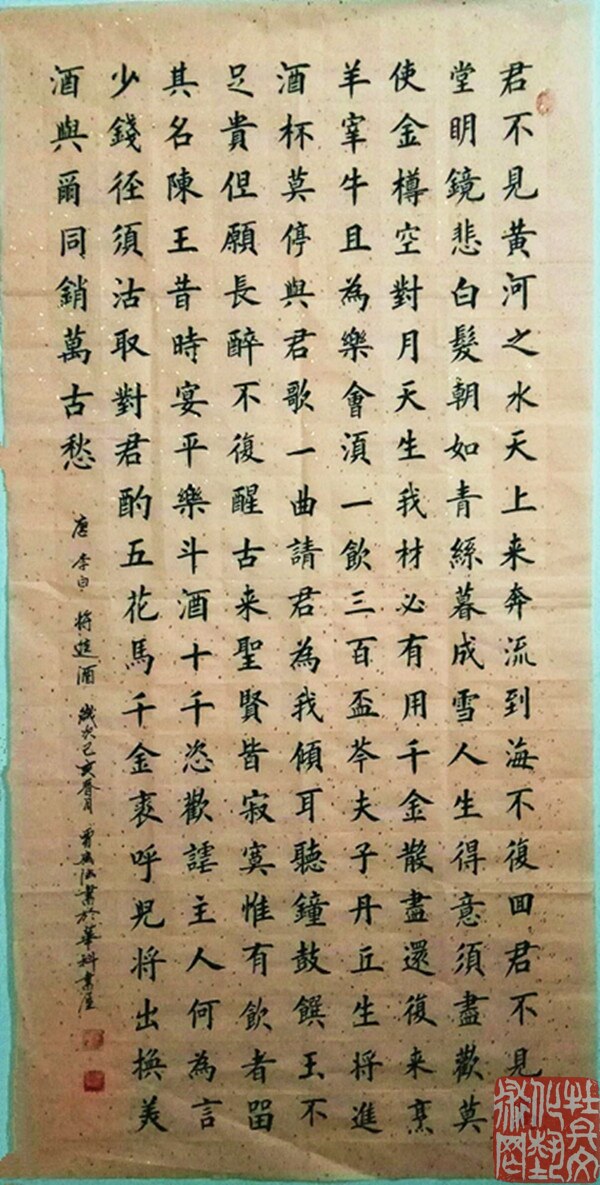 君不見黄河之水天上来奔流到海不復回君不見
堂明鏡悲白髮朝如青絲暮成雪人生得意須盡歡莫
使金樽空對月天生我材必有用千金散盡還復来烹
羊宰牛且為樂會湏一飲三百盃岑夫子丹丘生将進
酒杯莫停與君歌一曲請君為我傾耳聽鐘鼓饌玉不
足貴但願長醉不復醒古来聖賢皆寂寞惟有飲者留
其名陳王昔時宴平樂斗酒十千恣歡謔主人何為言
少錢径須沽取對君酌五花馬千金裘呼兒将出換美
酒與爾同銷萬古愁
唐 李白 将進酒 歲次己亥春月 曾書於華科書屋